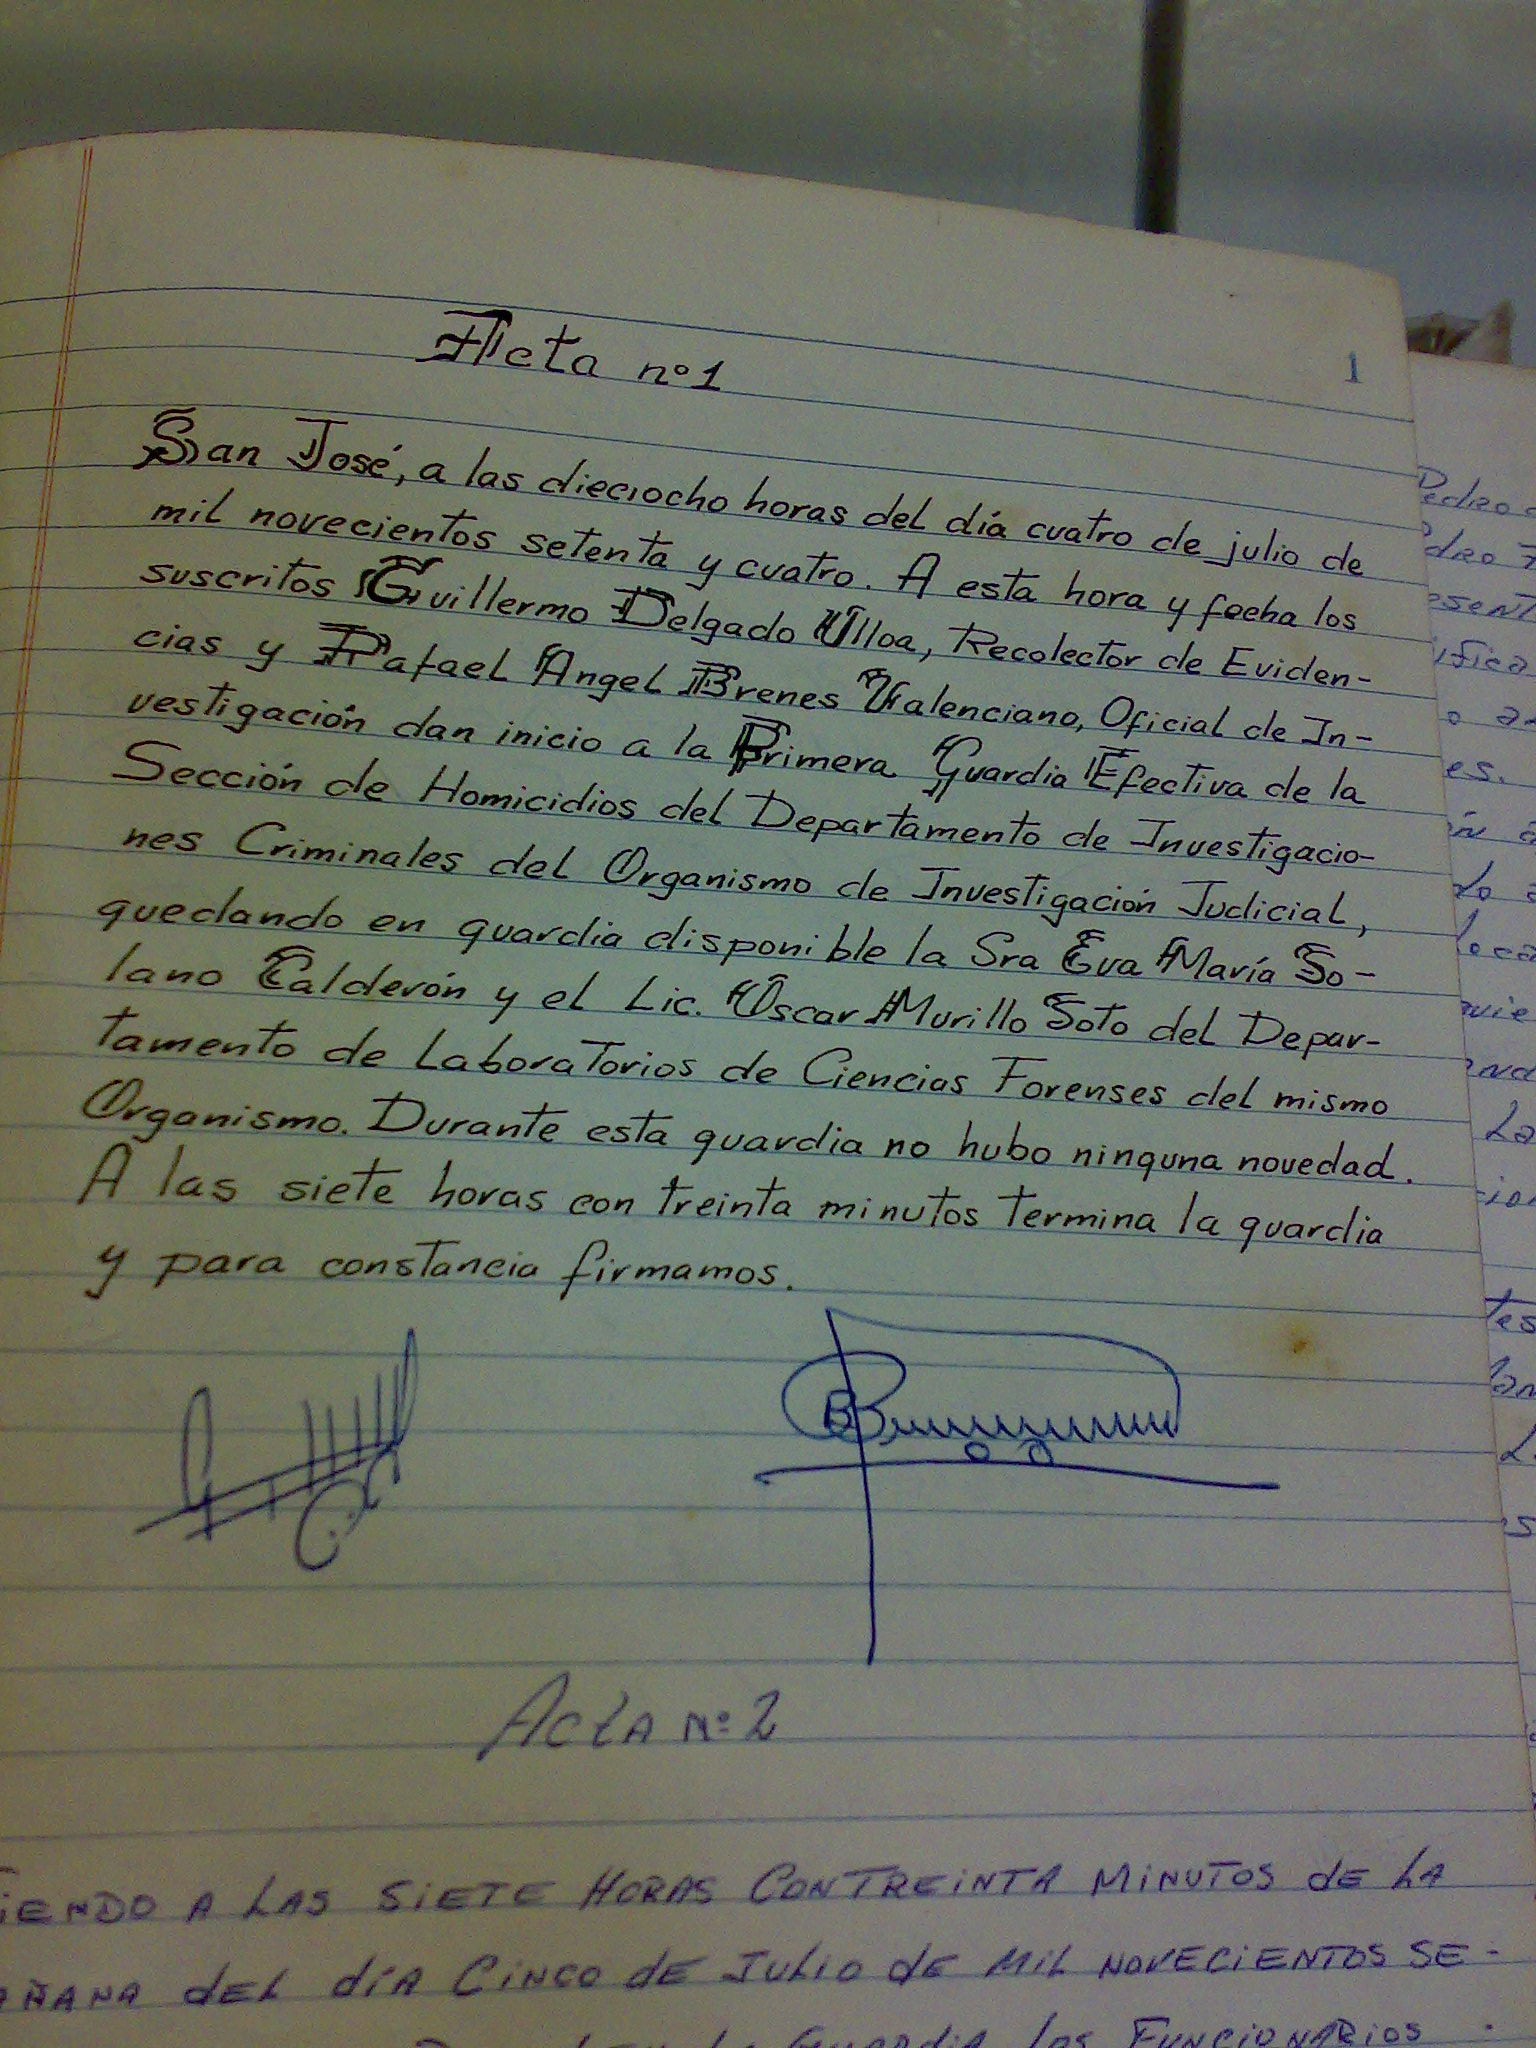 1
Acta nº1
San José, a las dieciocho horas del día cuatro de julio de
mil novecientos setenta y cuatro. A esta hora y fecha los
suscritos Guillermo Delgado Ulloa, Recolector de Eviden-
cias y Rafael Angel Brenes Valenciano, Oficial de In-
vestigación dan inicio a la Primera Guardia Efectiva de la
Sección de Homicidios del Departamento de Investigacio-
nes Criminales del Organismo de Investigación Judicial,
quedando en guardia disponible la Sra Eva María So-
lano Calderón y el Lic. Oscar Murillo Soto del Depar-
tamento de Laboratorios de Ciencias Forenses del mismo
Organismo. Durante esta guardia no hubo ninguna novedad.
A las siete horas con treinta minutos termina la guardia
y para constancia firmamos.
Acta Nº 2
SIENDO A LAS SIETE HORAS CON TREINTA MINUTOS DE LA
MAÑANA DEL DÍA CINCO DE JULIO DE MIL NOVECIENTOS SE-
LA GUARDIA LOS FUNCIONARIOS
Pedro